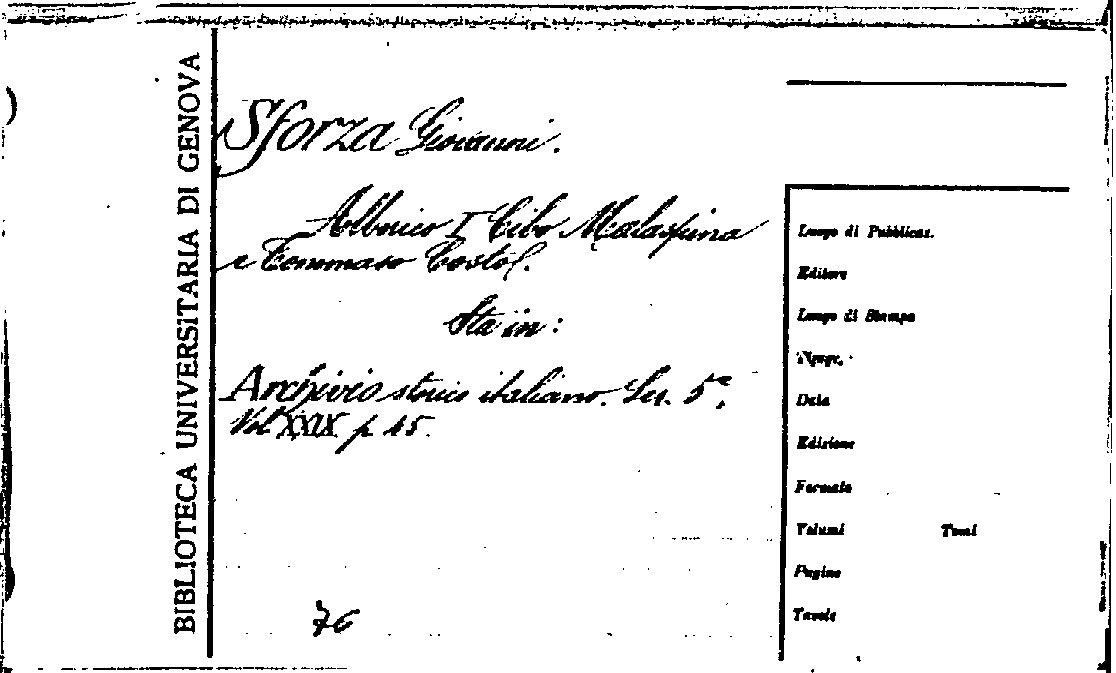 BIBLIOTECA UNIVERSITARIA DI GENOVA
Sforza Giovanni.
Alberico I Cibo Malaspina
e Tommaso Costo.
Sta in:
Archivio storico italiano. Ser. 5ª,
Vol XXIX p. 45.
76
Luogo di Pubblicaz.
Editore
Luogo di Stampa
Tipogr.
Data
Edizione
Formato
Volumi Tomi
Pagine
Tavole